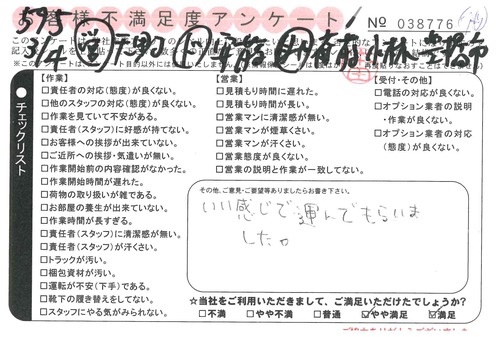 お客様不満足度アンケート
No 038776
595
3/4
チェックリスト
【作業】
□責任者の対応(態度)が良くない。
□他のスタッフの対応(態度)が良くない。
□作業を見ていて不安がある。
□責任者(スタッフ)に好感が持てない。
□お客様への挨拶が出来ていない。
□ご近所への挨拶・気遣いが無い。
□作業開始前の内容確認がなかった。
□作業開始時間が遅れた。
□荷物の取り扱いが雑である。
□お部屋の養生が出来ていない。
□作業時間が長すぎる。
□責任者(スタッフ)に清潔感が無い。
□責任者(スタッフ)が汗くさい。
□トラックが汚い。
□梱包資材が汚い。
□運転が不安(下手)である。
□靴下の履き替えをしてない。
□スタッフにやる気がみられない。
【営業】
□見積もり時間に遅れた。
□見積もり時間が長い。
□営業マンに清潔感が無い。
□営業マンが煙草くさい。
□営業マンが汗くさい。
□営業態度が良くない。
□営業の説明と作業が一致してない。
【受付・その他】
□電話の対応が良くない。
□オプション業者の説明
・作業が良くない。
□オプション業者の対応
(態度)が良くない。
その他、ご意見・ご要望等ありましたらお書き下さい。
いい感じで運んでもらいま
した。
☆当社をご利用いただきまして、ご満足いただけたでしょうか?
□不満 □やや不満 □普通 ☑やや満足 ☑満足
ご協力ありがとうございました